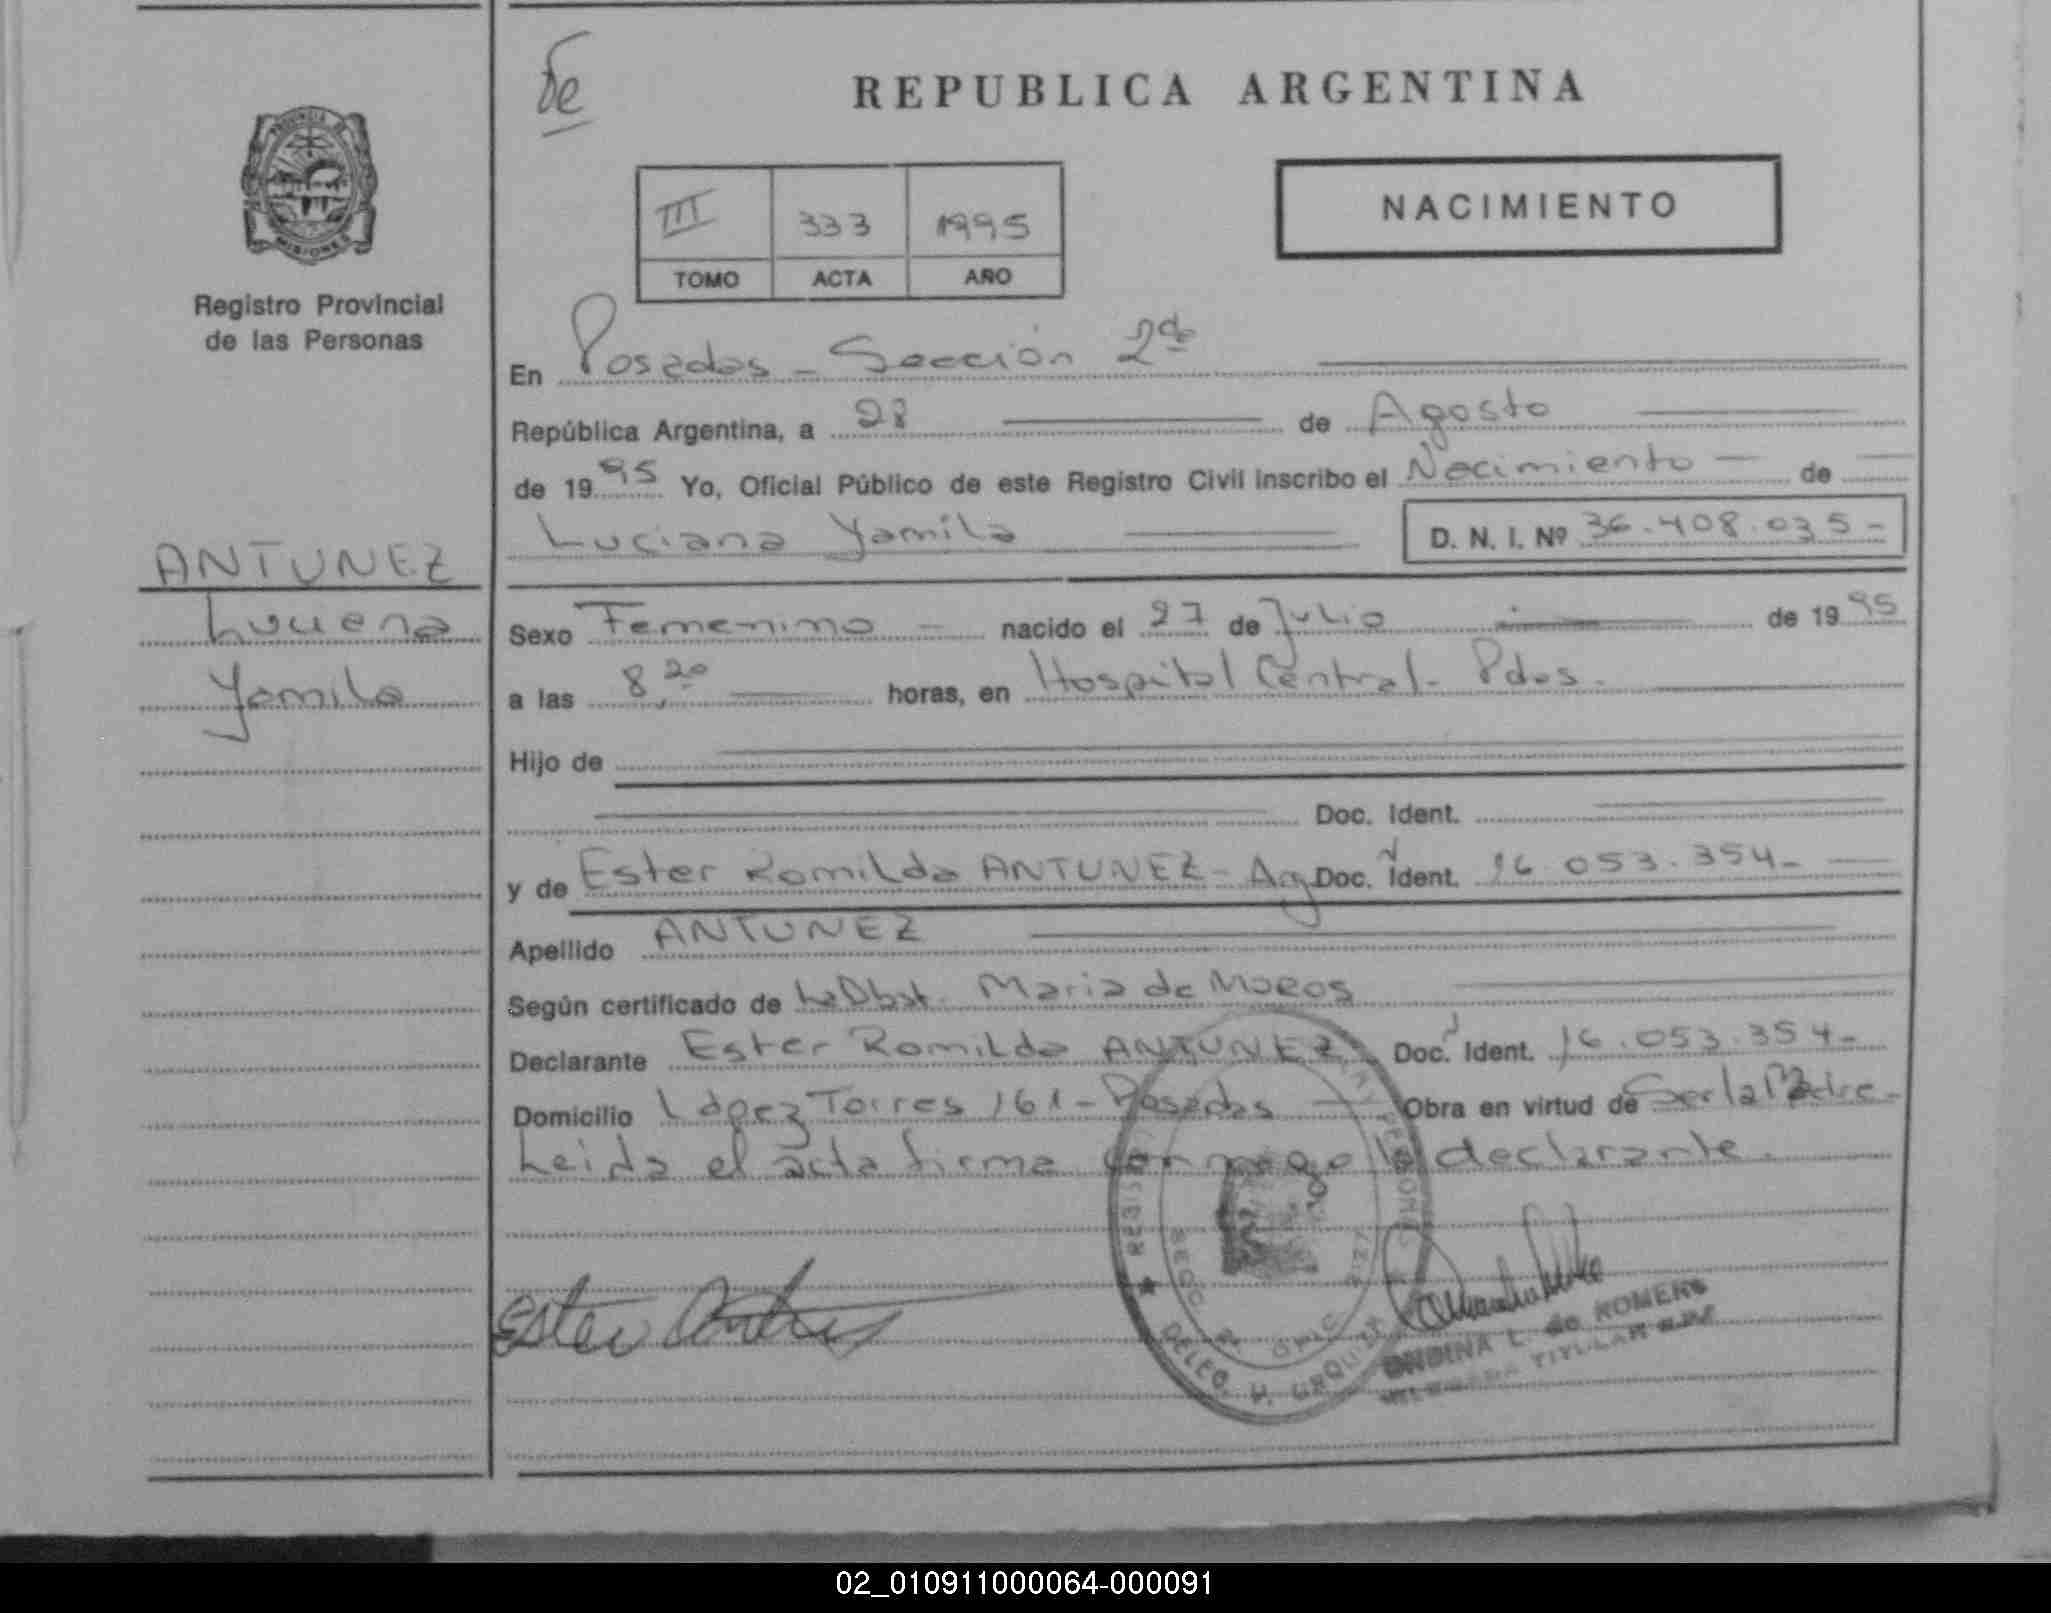 de
REPUBLICA ARGENTINA
PROVINCIA DE
MISIONES
Registro Provincial
de las Personas
III 333 1995
TOMO ACTA AÑO
NACIMIENTO
En Posadas - Sección 2da
República Argentina, a 28 de Agosto
de 1995 Yo, Oficial Público de este Registro Civil inscribo el Nacimiento - de
Luciana Yamila D. N. I. Nº 36.408.035-
ANTUNEZ
Luciana
Yamila
Sexo Femenino - nacido el 27 de Julio de 1995
a las 8,20 horas, en Hospital Central - Pdas.
Hijo de
Doc. Ident.
y de Ester Romilda ANTUNEZ - Arg Doc. Ident. 16.053.354-
Apellido ANTUNEZ
Según certificado de la Obst. Maria de
Declarante Ester Romilda ANTUNEZ Doc. Ident. 16.053.354-
Domicilio López Torres 161 - Posadas - Obra en virtud de Ser la Madre-
Leida el acta firma conmigo la declarante.
Ester
DELEG. H. URQUIZA
ONDINA L. de ROMERO
TITULAR
02_010911000064-000091